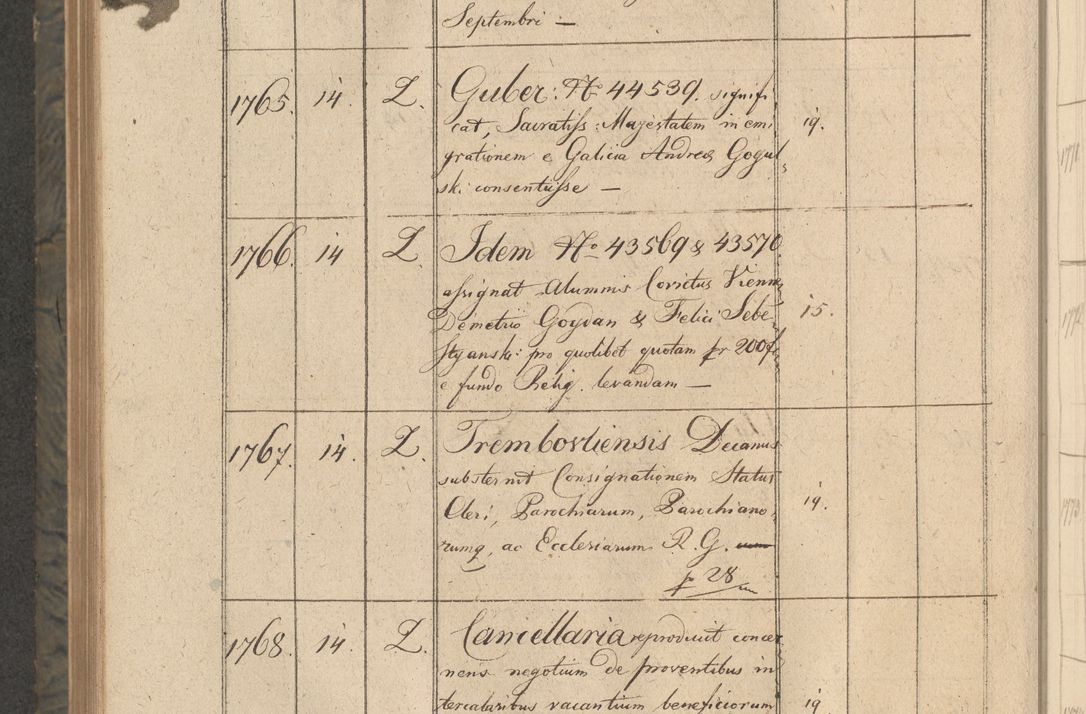 Septembri —
1765. 14. L. Guber: No 44539. signifi
cat, Sacratiss: Majestatem in emi
19.
grationem e Galicia Andreæ Gogul
sk: consentiisse —
1766. 14 L. Idem No 43569 & 43570.
assignat Alumnis Convictus Vienn:
Demetrio Goydan & Felici Sebe
15.
styansk: pro quolibet quotam pr 200 f
e fundo Relig. levandam —
1767. 14. L. Trembovliensis Decanus
substernit Consignationem Status
Cleri, Parochiarum, Parochiano
19.
rumq, ac Ecclesiarum R. G.
p 28
1768. 14. L. Cancellaria reproducit concer
nens negotium de proventibus in
tercalaribus vacantium beneficiorum
19